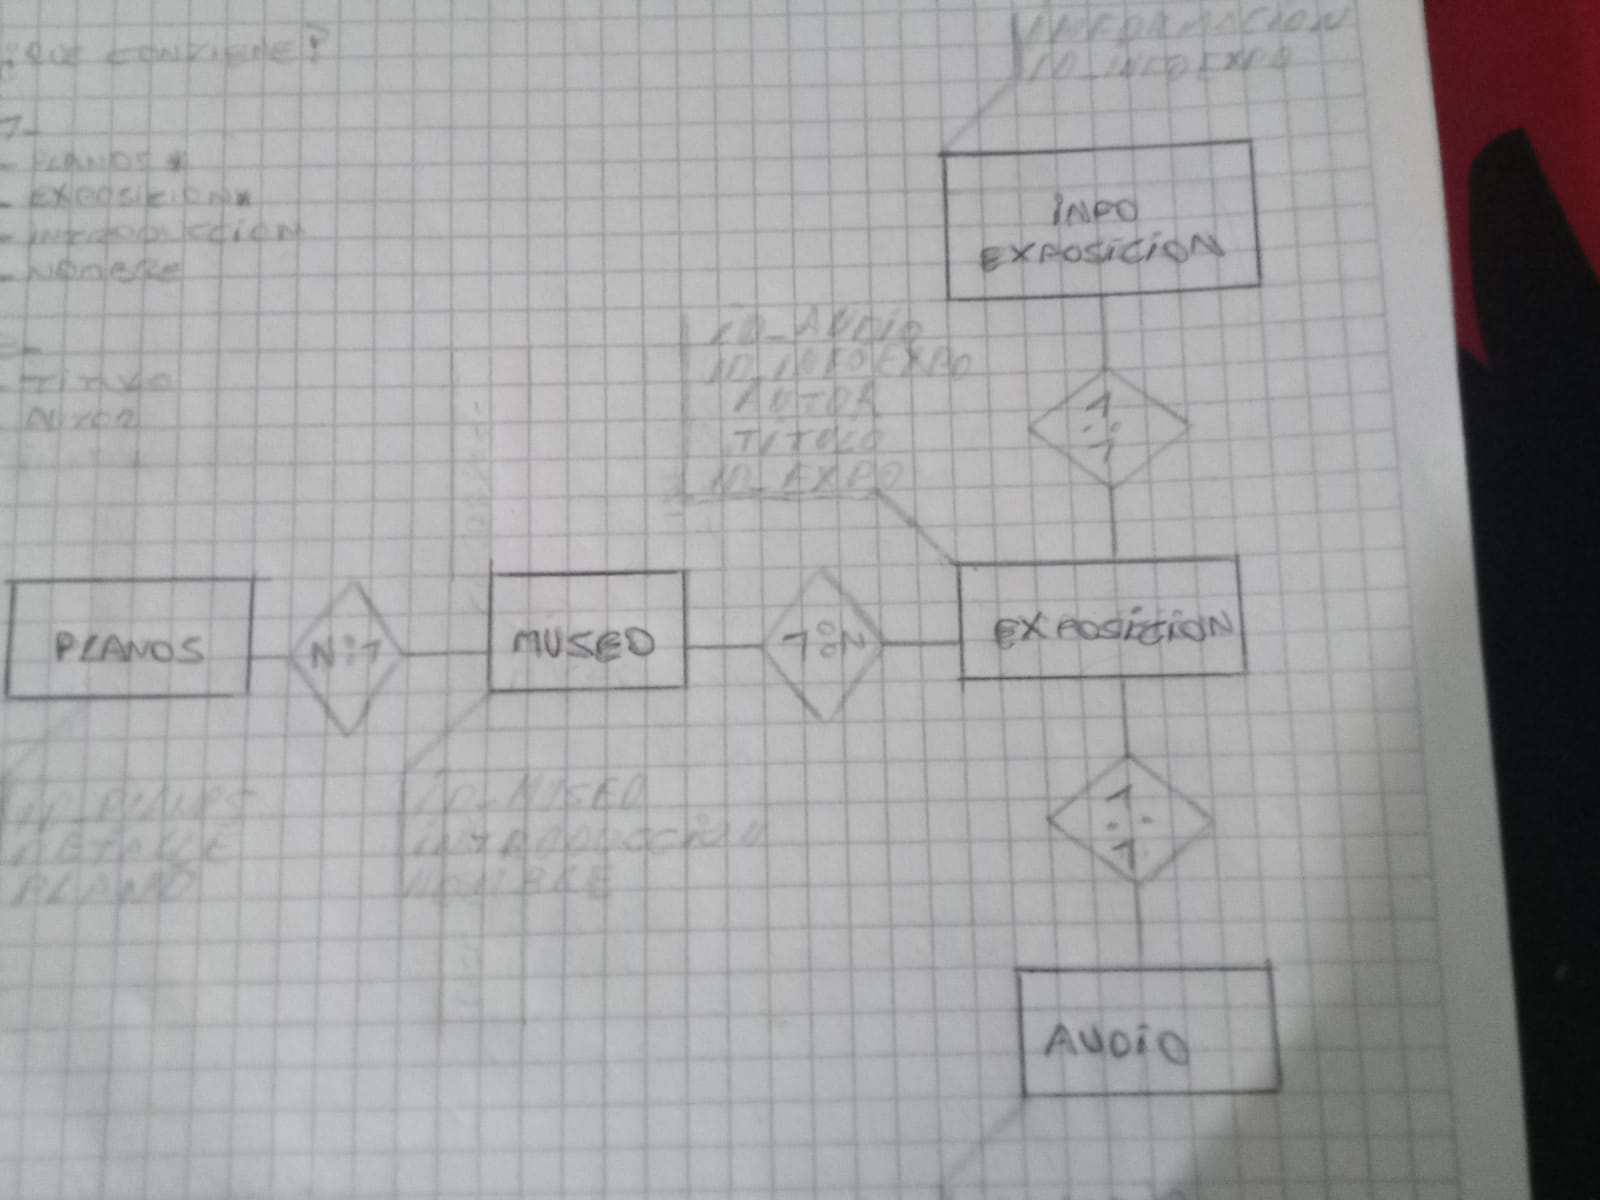 ¿QUE CONTIENE?
1-
- PLANOS *
- EXPOSICION*
- INTRODUCCION
- NOMBRE
2-
- TITULO
- AUTOR
INFORMACION
ID_INFOEXPO
INFO
EXPOSICIÓN
1
:
1
ID_AUDIO
ID_INFOEXPO
AUTOR
TITULO
ID_EXPO
PLANOS
N:1
MUSEO
1:N
EXPOSICIÓN
ID_PLANOS
DETALLE
PLANO
ID_MUSEO
INTRODUCCIÓN
NOMBRE
1
:
1
AUDIO